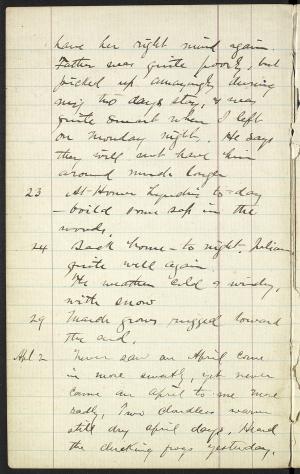 have her right mind again.
Father was quite poorly, but
picked up amazingly during
my two days stay, & was
quite smart when I left
on Monday night. He says
they will not have him
around much longer
23 At Homer Lynch's to-day
– boild some sap in the
woods.
24 Back home – to night. Julian
quite well again.
The weather cold & windy,
with snow
29 March grows rugged toward
the end.
Apl 2 Never saw an April come
in more sweetly, yet never
came an April to me more
sadly, Two cloudless warm
still dry april days. Heard
the clucking frogs yesterday,